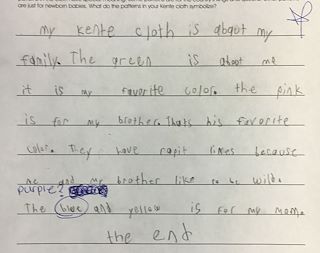 are just for newborn babies. What do the patterns in your kente cloth symbolize?
my kente cloth is about my
family. The green is about me
it is my favorite color. the pink
is for my brother. Thats his favorite
color. They have rapit lines because
me and my brother like to be wild.
purple?
The blue and yellow is for my mom.
the end